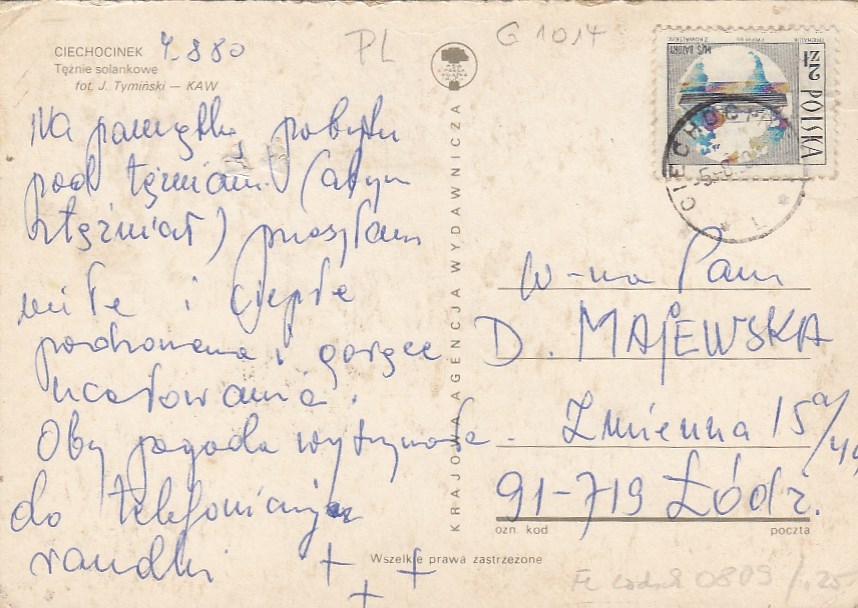 CIECHOCINEK
Tężnie solankowe
fot. J. Tymiński — KAW
PL
G 1014
2 zł POLSKA
CIECHOCI
Na pamiątkę pobytu
pod tężniami (abym
stężniał) przesyłam
miłe i ciepłe
pozdrowienia i gorące
ucałowania.
Oby pogoda wytrzymała
do telefonicznej
randki + + +
KRAJOWA AGENCJA WYDAWNICZA
W-na Pani
D. MAJEWSKA
Zmienna 15a/
91-719 Łódź.
ozn. kod
poczta
Wszelkie prawa zastrzeżone